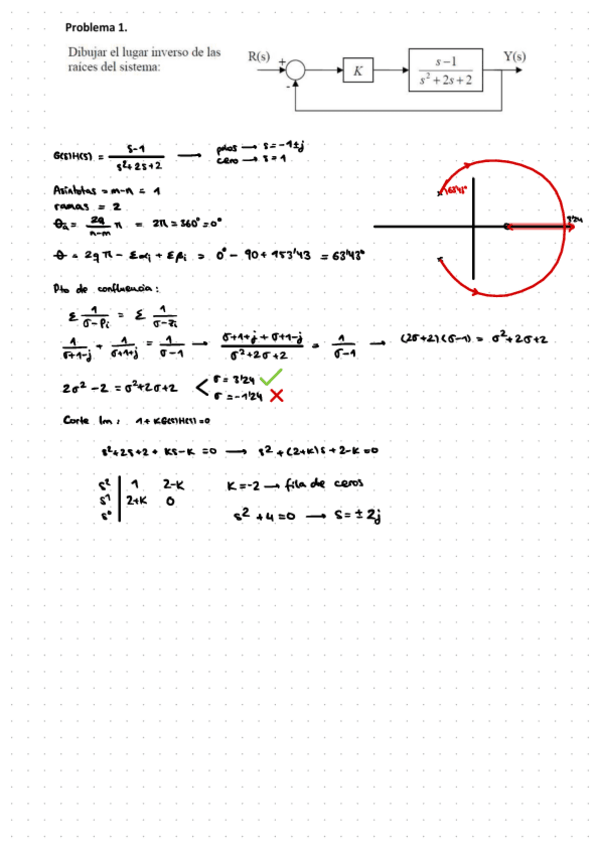 Problema 1.
Dibujar el lugar inverso de las
raíces del sistema:
R(s) + - K s−1 / s²+2s+2 Y(s)
G(s)H(s) = s-1 / s²+2s+2 → polos → s=-1±j
cero → s=1
Asíntotas = m-n = 1
ramas = 2
θa = 2q / n-m π = 2π = 360° = 0°
θ = 2qπ - Σαi + Σβi = 0° - 90 + 153'43 = 63'43°
63'43°
3'24
Pto de confluencia:
Σ 1/σ-pi = Σ 1/σ-zi
1/σ+1-j + 1/σ+1+j = 1/σ-1 → σ+1+j + σ+1-j / σ²+2σ+2 = 1/σ-1 → (2σ+2)(σ-1) = σ²+2σ+2
2σ²-2 = σ²+2σ+2 < σ = 3'24 ✓
σ = -1'24 ✗
Corte Im: 1+KG(s)H(s)=0
s²+2s+2+Ks-K=0 → s²+(2+K)s+2-K=0
s² | 1 2-K K=-2 → fila de ceros
s¹ | 2+K 0
s⁰ | s²+4=0 → s=±2j